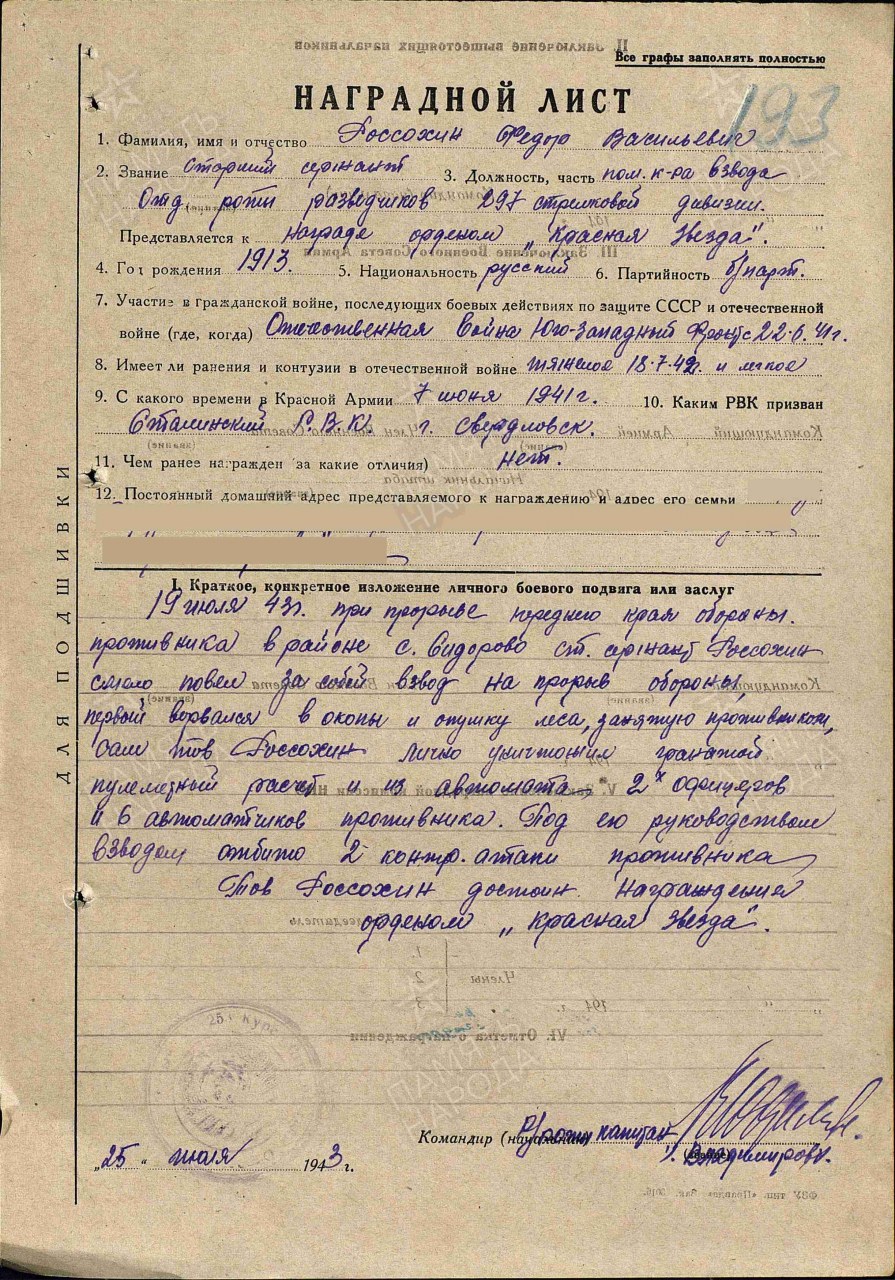 Все графы заполнять полностью
193
НАГРАДНОЙ ЛИСТ
1. Фамилия, имя и отчество Россохин Федор Васильевич
2. Звание Старший сержант 3. Должность, часть пом. к-ра взвода
Отд. роты разведчиков 297 стрелковой дивизии.
Представляется к награде орденом „Красная Звезда".
4. Год рождения 1913. 5. Национальность русский 6. Партийность б/парт.
7. Участие в гражданской войне, последующих боевых действиях по защите СССР и отечественной
войне (где, когда) Отечественная Война Юго-Западный Фронт с 22.6.41г.
8. Имеет ли ранения и контузии в отечественной войне тяжелое 18.7.42г. и легкое
9. С какого времени в Красной Армии 7 июня 1941г. 10. Каким РВК призван
Сталинский Р.В.К. г. Свердловск.
11. Чем ранее награжден за какие отличия) нет.
12. Постоянный домашний адрес представляемого к награждению и адрес его семьи
I. Краткое, конкретное изложение личного боевого подвига или заслуг
19 июля 43г. при прорыве переднего края обороны.
противника в районе с. Сидорово ст. сержант Россохин
смело повел за собой взвод на прорыв обороны,
первый ворвался в окопы и опушку леса, занятую противником,
Сам тов Россохин лично уничтожил гранатой
пулеметный расчет и из автомата 2х офицеров
и 6 автоматчиков противника. Под его руководством
взводом отбито 2 контр. атаки противника
Тов Россохин достоин награждения
орденом „Красная Звезда".
ДЛЯ ПОДШИВКИ
Командир (начальник) роты капитан
Владимиров.
„25" июля 1943 г.
ПАМЯТЬ НАРОДА